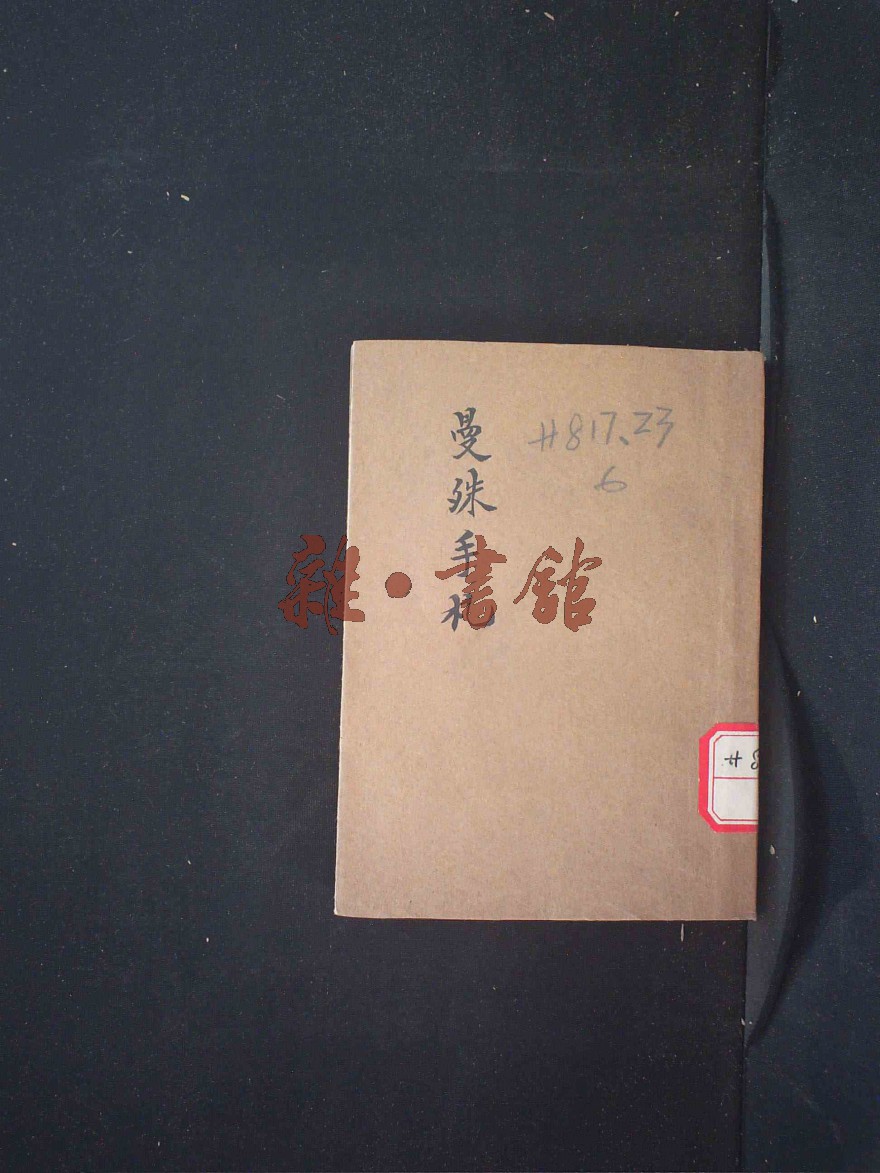 曼殊手札
H817.23
6
雜·書館
H 8